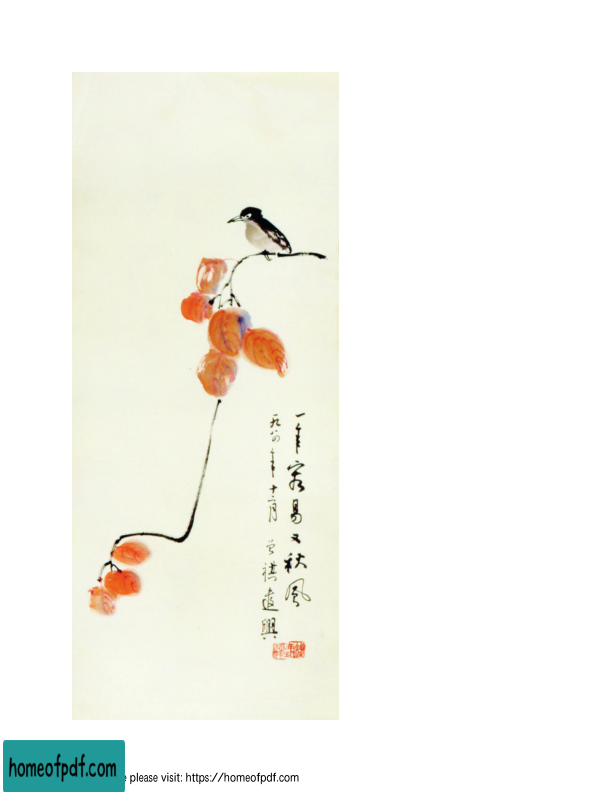 一年容易又秋风
一九八四年十二月 曾祺遣興
homeofpdf.com
e please visit: https://homeofpdf.com